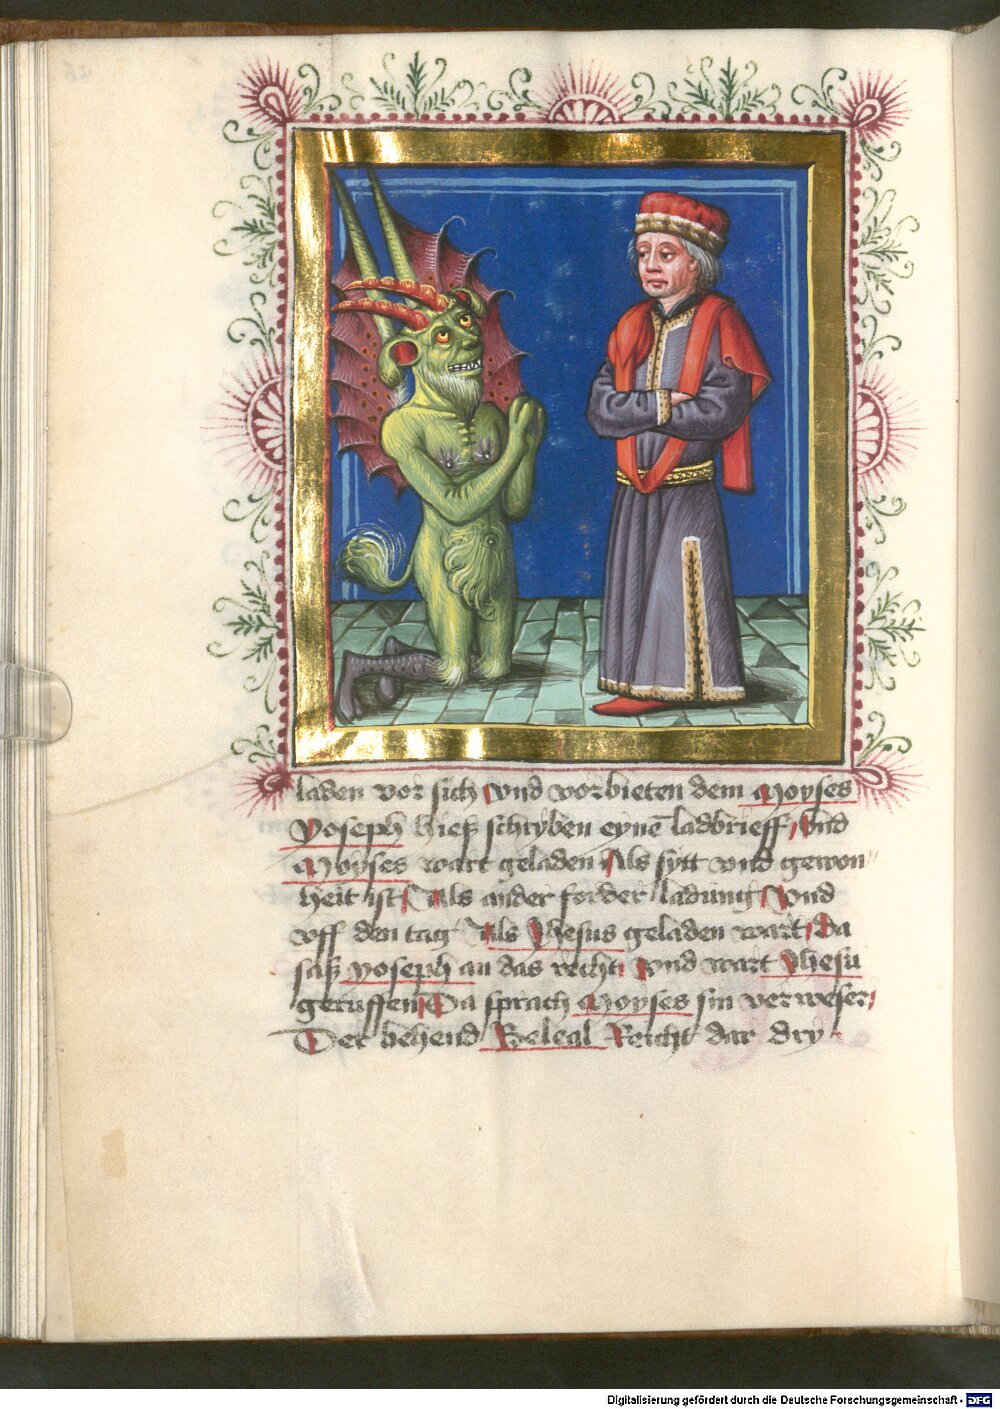 laden vor sich Vnd vorbieten dem Moyses
Yoseph hieß schryben eynē ladbrieff, Vnd
Moyses wart geladen Als sytt vnd gewon
heit ist, Als ander forder ladung Vnd
vff den tag Als Yhesus geladen wart, Da
saß yoseph an das recht, Vnd wart Yhesu
geruffen, Da sprach Moyses sin verweser,
Der behend Beleal Reicht dar dry
Digitalisierung gefördert durch die Deutsche Forschungsgemeinschaft - DFG